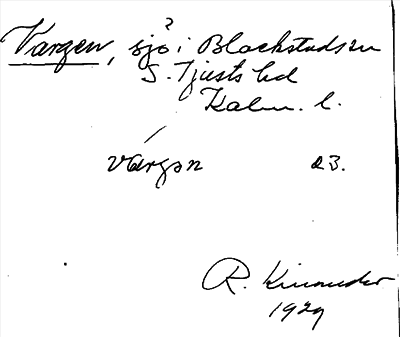 ?
Vargen, sjö i Blackstads sn
S. Tjusts hd
Kalm. l.
várgən a3.
R. Kinander
1929